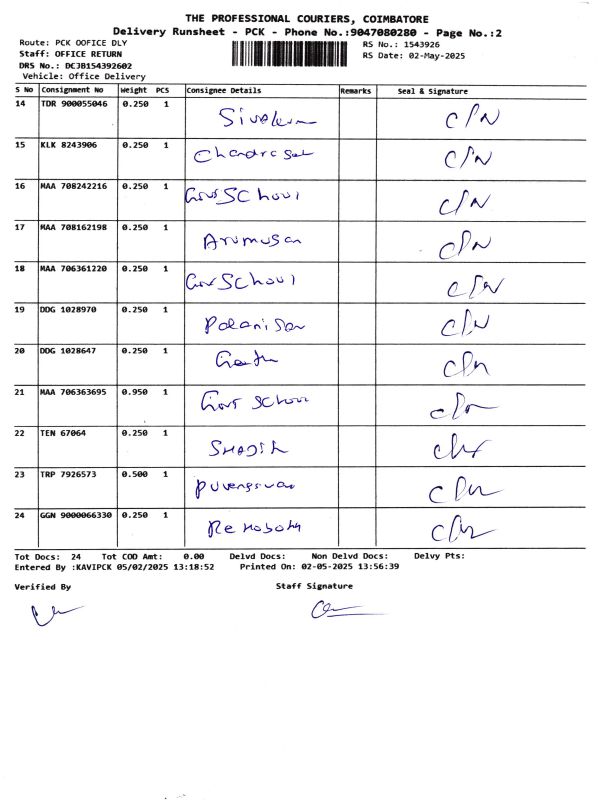 THE PROFESSIONAL COURIERS, COIMBATORE
Delivery Runsheet - PCK - Phone No.:9047080280 - Page No.:2
Route: PCK OOFICE DLY
RS No.: 1543926
Staff: OFFICE RETURN
RS Date: 02-May-2025
DRS No.: DCJB154392602
Vehicle: Office Delivery
S No Consignment No Weight PCS Consignee Details Remarks Seal & Signature
14 TDR 900055046 0.250 1
15 KLK 8243906 0.250 1
16 MAA 708242216 0.250 1 Govt School
17 MAA 708162198 0.250 1
18 MAA 706361220 0.250 1 Gov School
19 DDG 1028970 0.250 1
20 DDG 1028647 0.250 1
21 MAA 706363695 0.950 1 Govt School
22 TEN 67064 0.250 1
23 TRP 7926573 0.500 1
24 GGN 9000066330 0.250 1
Tot Docs: 24 Tot COD Amt: 0.00 Delvd Docs: Non Delvd Docs: Delvy Pts:
Entered By :KAVIPCK 05/02/2025 13:18:52 Printed On: 02-05-2025 13:56:39
Verified By Staff Signature